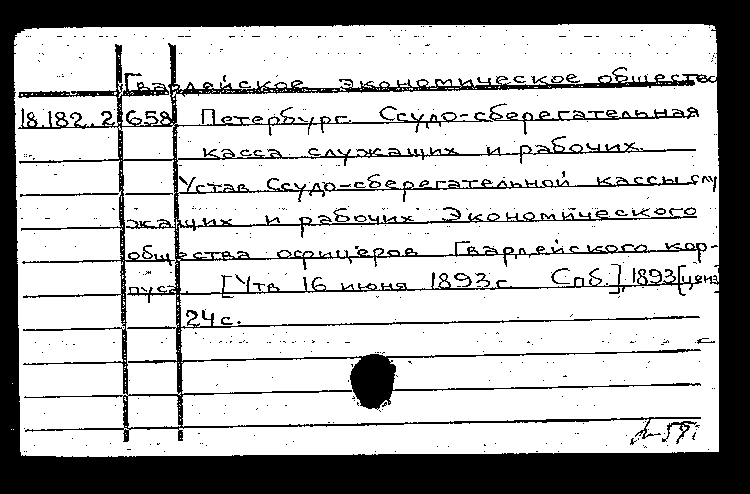 Гвардейское экономическое общество
18.182.2.658 Петербург. Ссудо-сберегательная
касса служащих и рабочих.
Устав Ссудо-сберегательной кассы слу
жащих и рабочих Экономического
общества офицеров Гвардейского кор-
пуса. [Утв 16 июня 1893 г. Спб.], 1893 [ценз
24 с.